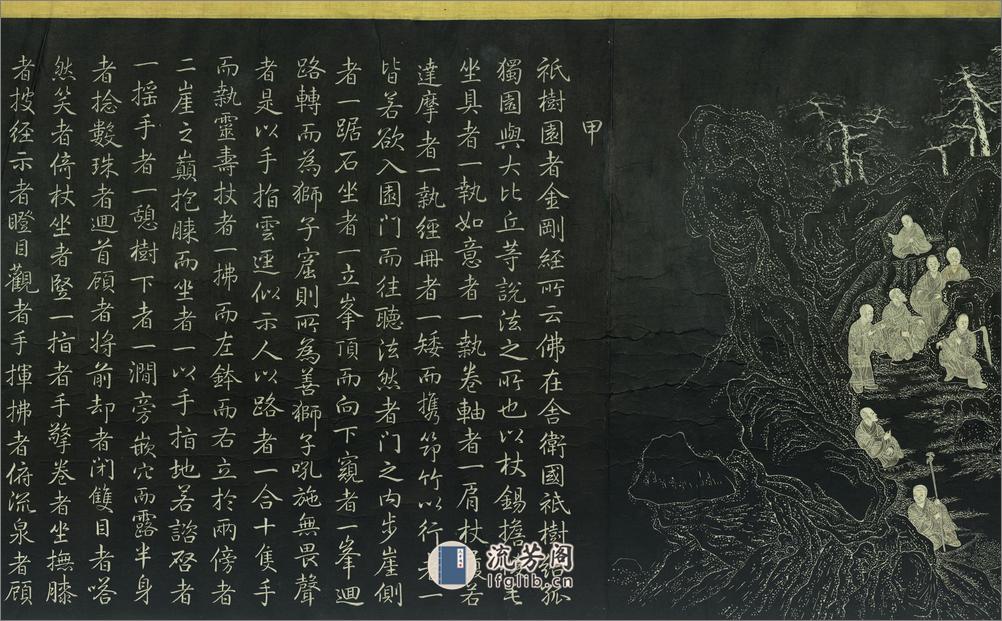 甲
祇樹園者金剛經所云佛在舍衛國祇樹給孤
獨園與大比丘等說法之所也以杖錫擔
坐具者一執如意者一執卷軸者一肩杖若
達摩者一執經冊者一矮而携笻竹以行者一
皆若欲入園門而往聽法然者門之内步崖側
者一踞石坐者一立峯頂而向下窺者一峯迴
路轉而為獅子窟則所為善獅子吼施無畏聲
者是以手指雲運似示人以路者一合十隻手
而執靈壽杖者一拂而左鉢而右立於兩傍者
二崖之巔抱膝而坐者一以手指地若諮啓者
一摇手者一憩樹下者一澗旁嵌穴而露半身
者捻數珠者迴首顧者將前却者闭雙目者嗒
然笑者倚杖坐者竪一指者手擎卷者坐撫膝
者披經示者瞪目觀者手揮拂者俯流泉者顧
流芳阁
lfglib.cn